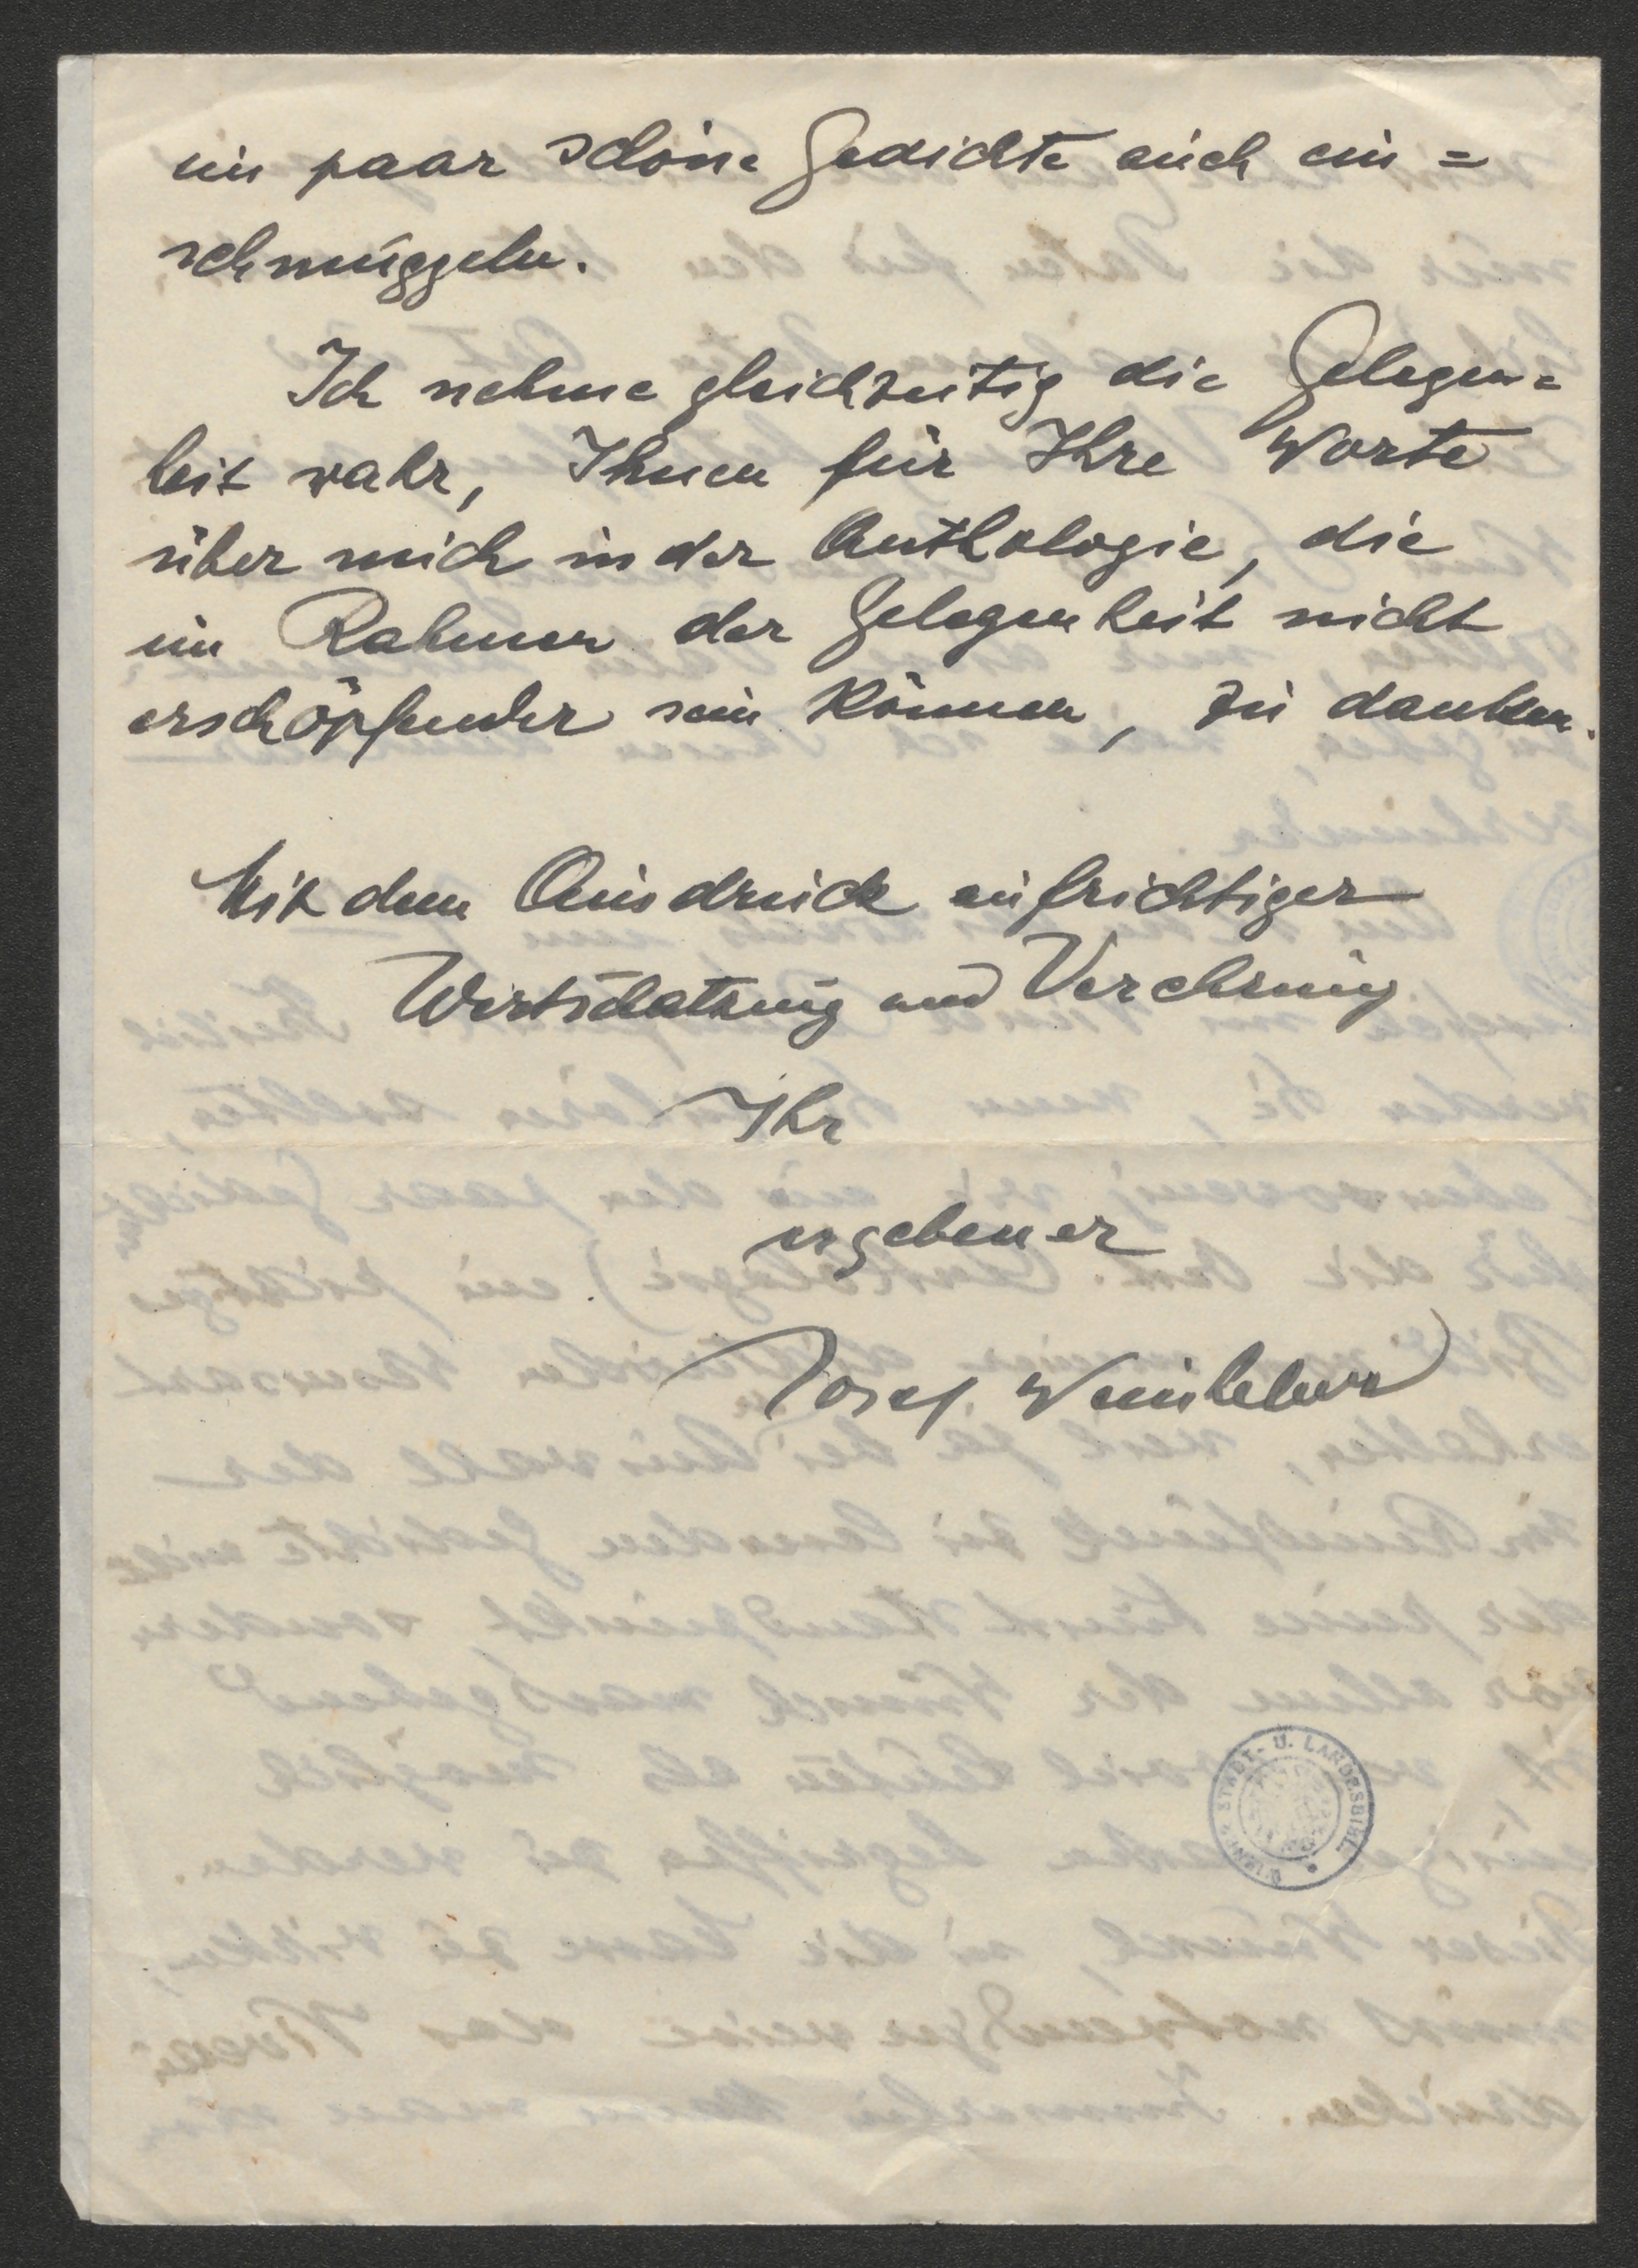 ein paar schöne Gedichte auch ein=
schmuggeln.
Ich nehme gleichzeitig die Gelegen=
heit wahr, Ihnen für Ihre Worte
über mich in der Anthologie, die
im Rahmen der Gelegenheit nicht
erschöpfender sein können, zu danken.
Mit dem Ausdruck aufrichtiger
Wertschätzung und Verehrung
Ihr
ergebener
Josef Weinheber
WIENER STADT- U. LANDESBIBL.